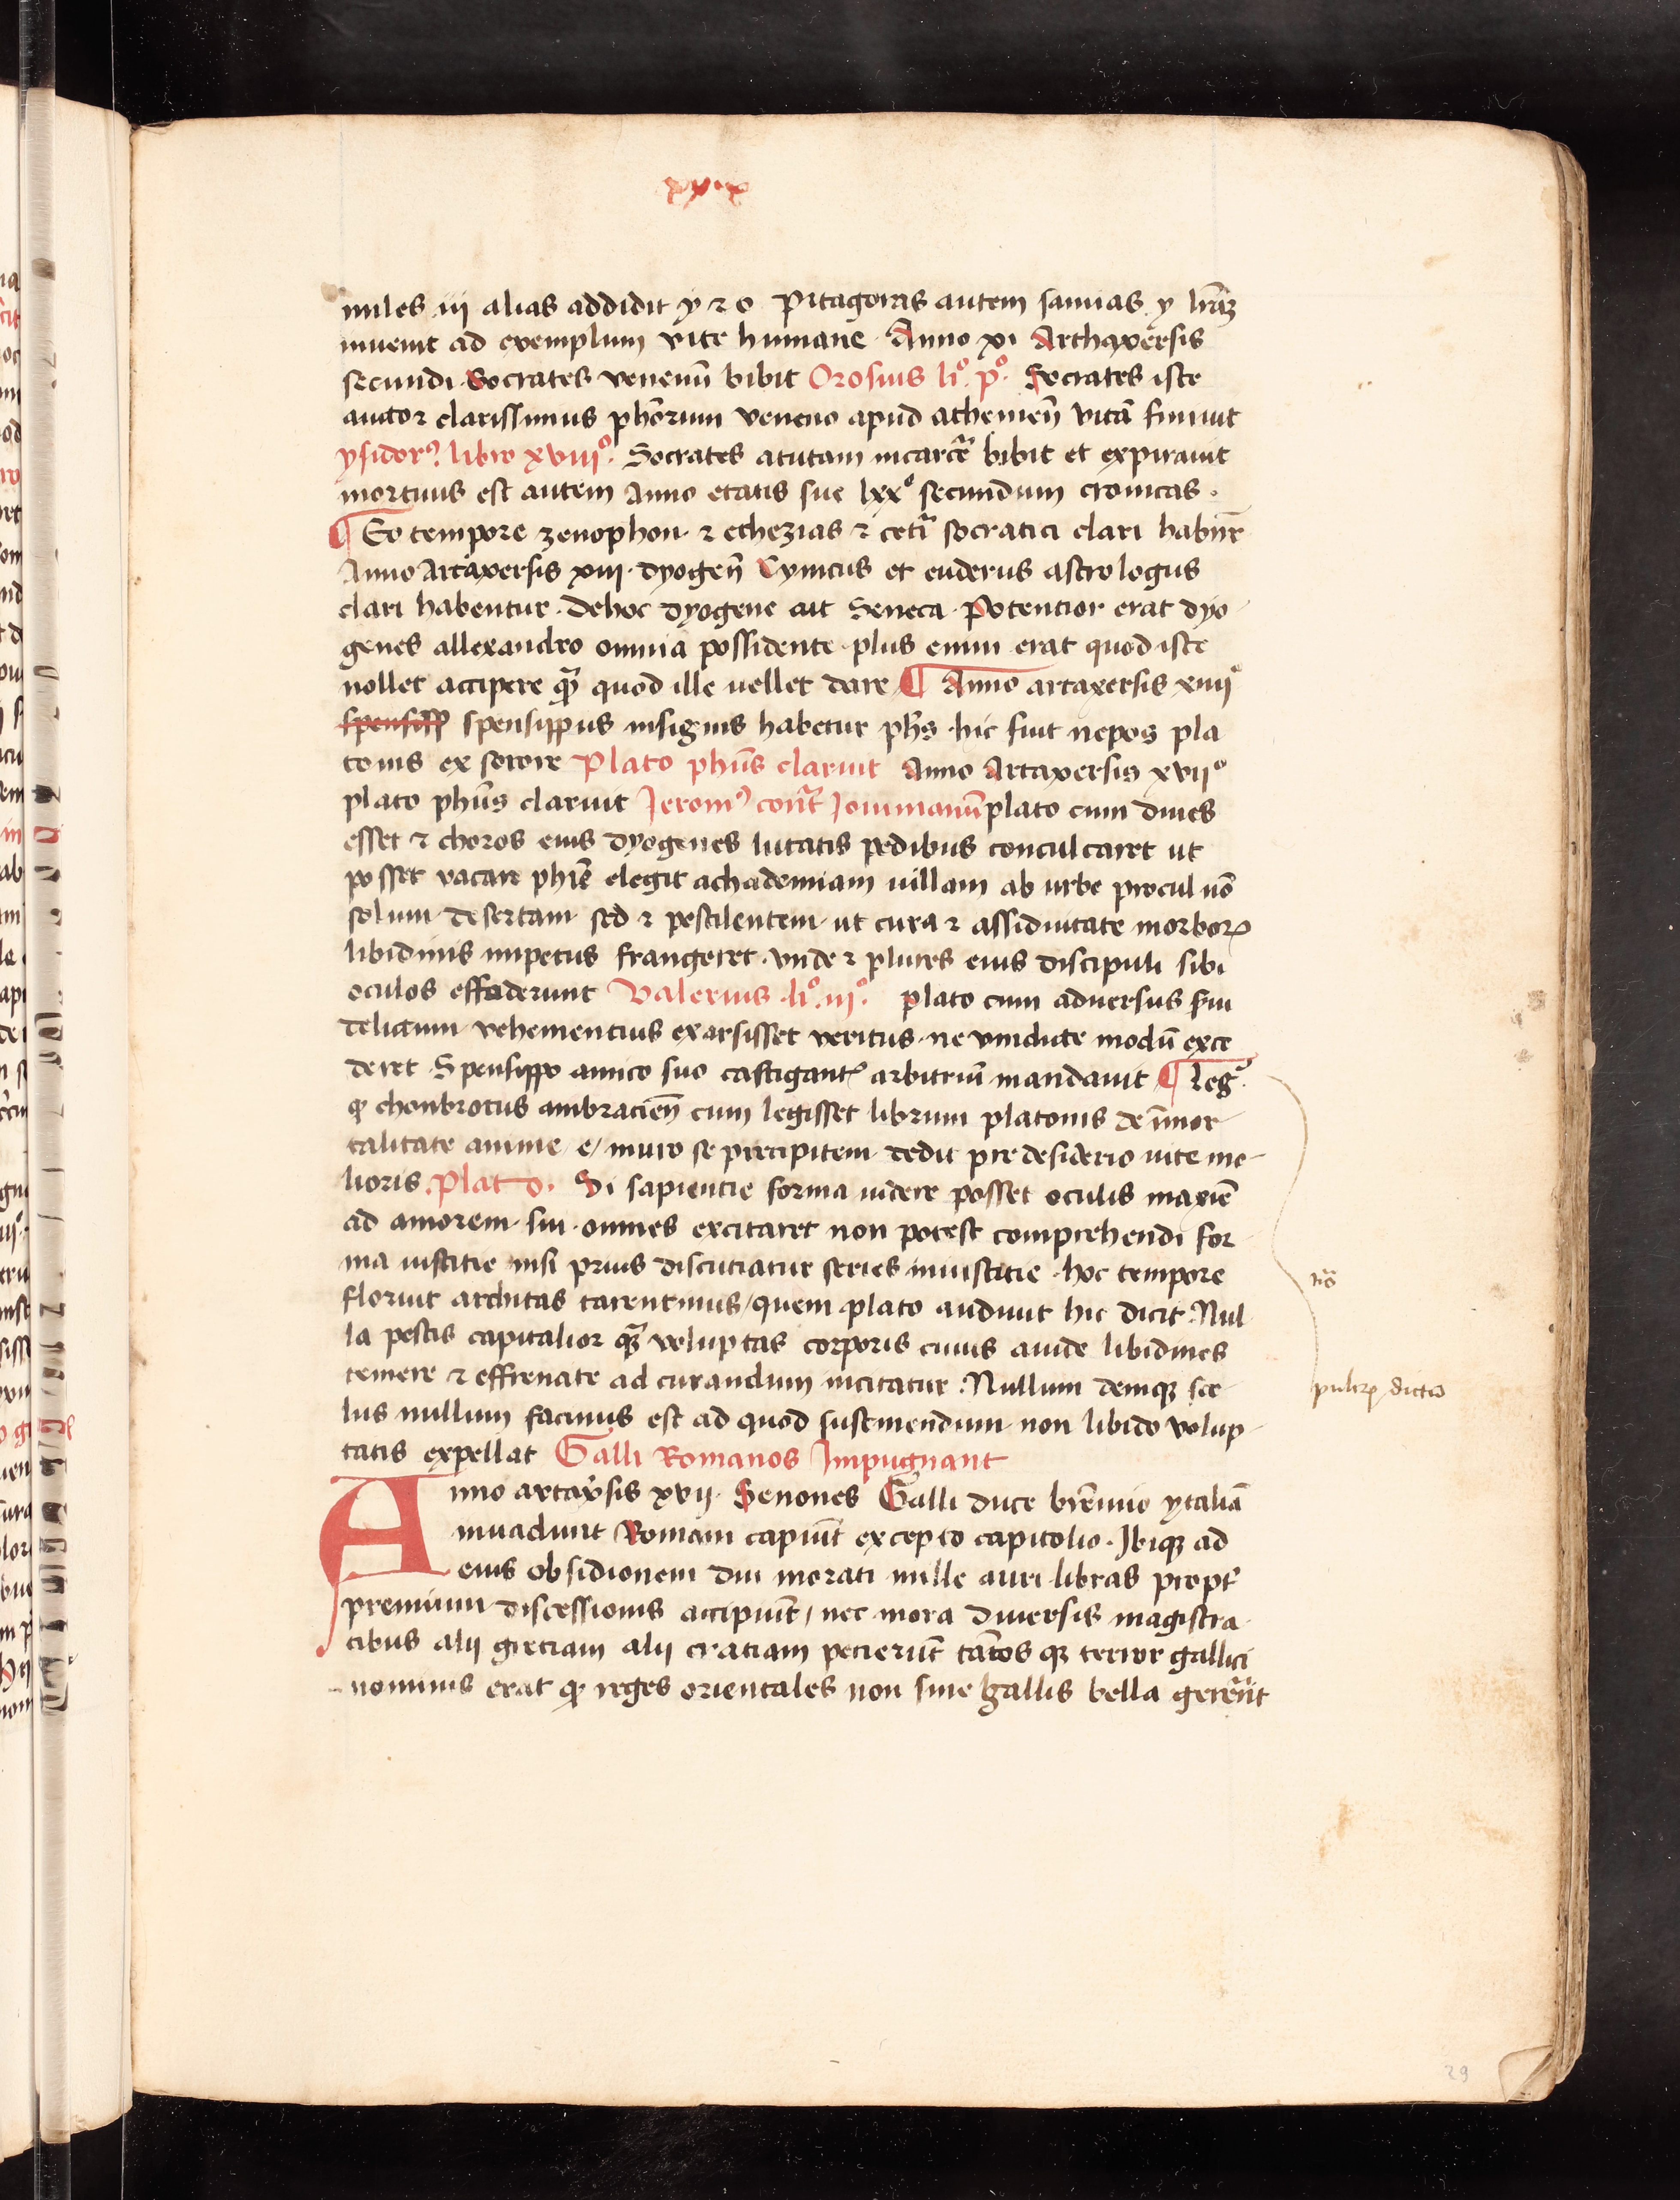 xx·x
miles iii alias addidit y ⁊ o Pitagoras autem samias y l̄raꝫ
inuenit ad exemplum vite humane · Anno xi Arthaxersis
secundi · Socrates venenū bibit Orosius li°. p°. Socrates iste
auctor clarissimus ph̄orum veneno apud athenien̄ vitā finiuit
ysidorꝰ libro xviii°. Socrates atutam incarc̄e bibit et expirauit
mortuus est autem Anno etatis sue lxx° secundum cronicas .
¶ Eo tempore zenophon · ⁊ ethezias ⁊ cetī socratici clari habnr̄
Anno Artaxersis xiii · dyogen̄ Cynicus et euderus astrologus
clari habentur · dehoc dyogene ait Seneca · Potentior erat dyo-
genes allexandro omnia possidente · plus enim erat quod iste
nollet accipere qᷓ quod ille uellet dare ¶ Anno artaxersis xiiii°
spensiff spensippus insignis habetur ph̄s · hic fuit nepos pla
tonis ex sorore Plato phūs claruit Anno Artaxersis xvii°
plato phūs claruit Jeromꝰ cont̄ Jouinianum plato cum diues
esset ⁊ choros eius dyogenes lutatis pedibus conculcaret ut
posset vacare phīe elegit achademiam uillam ab urbe procul nō
solum desertam sed ⁊ pestilentem ut cura ⁊ assiduitate morboꝝ
libidinis impetus frangeret · vnde ⁊ plures eius discipuli sibi
oculos effoderunt Valerius li°. iii°. plato cum aduersus s̄ui
delictum vehementius exarsisset veritus · ne vindicte modū exce
deret Spensippo amico suo castigant̄ arbitriū mandauit ¶ leg̃
ꝙ chonbrotus ambracien̄ cum legisset librum platonis de īmor-
talitate anime e/ muro se precipitem dedit pre desiderio uite me-
lioris. Plato. Si sapientie forma uidere posset oculis maxīe
ad amorem sui omnes excitaret non potest comprehendi for-
ma iusticie nisi prius discutiatur series iniusticie · hoc tempore
floruit architas tarentinus/ quem plato audiuit hic dicit · Nul
la pestis capitalior qᷓ voluptas corporis cuius auide libidines
temere ⁊ effrenate ad curandum incitatur · Nullum deniqꝫ sce-
lus nullum facinus est ad quod sustinendum non libido volup-
tatis expellat Galli Romanos Impugnant
Anno artax̄sis xvii · Senones Galli duce brēnnio ytaliā
inuadunt Romam capiūt excepto capitolio · Ibiqꝫ ad
eius obsidionem diu morati mille auri libras propt̄
premium discessionis accipiūt / nec mora diuersis magistra-
tibus alij greciam alij tratiam petierūt tātos qꝫ terror gallici
nominis erat ꝙ reges orientales non sine gallis bella ger̄ēnt
nō
pulcrꝝ dictō
29